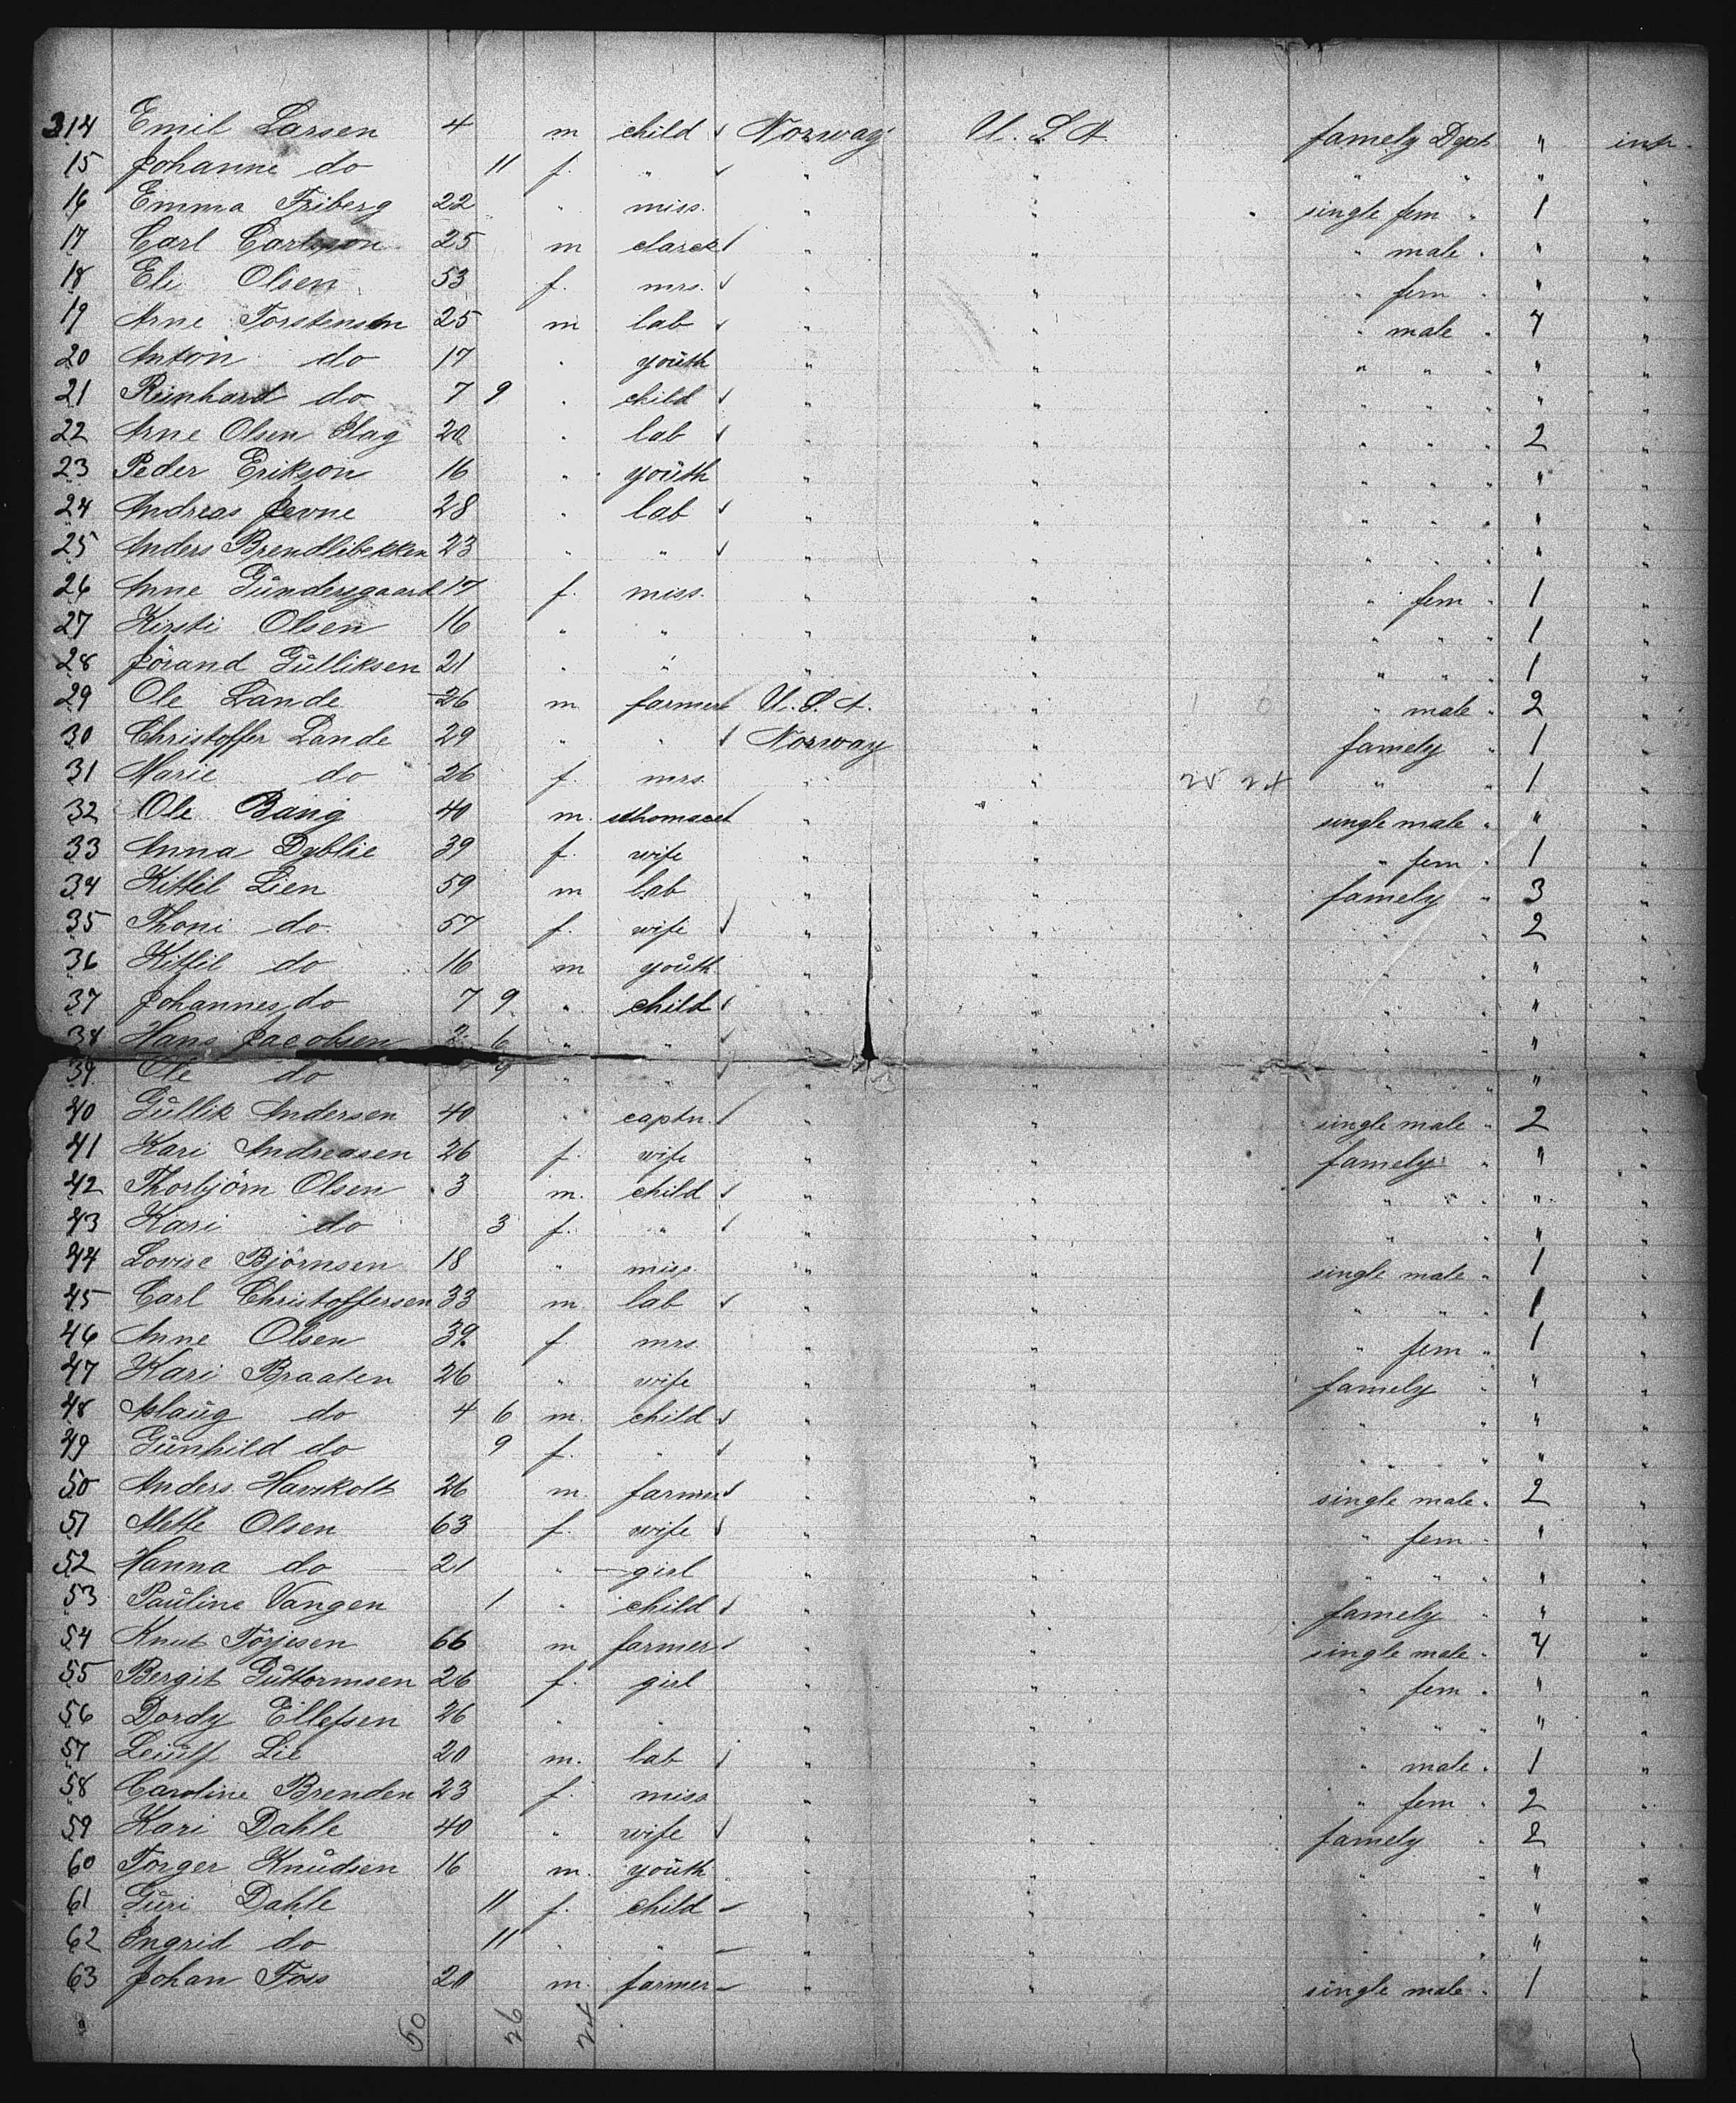 314 Emil Larsen 4 m child Norway U.S.A. famely Dept " intr.
15 Johanne do 11 f. " " " " " " "
16 Emma Friberg 22 " miss. " " single fem " 1 "
17 Carl Carlsson 25 m clarck " " " male " " "
18 Eli Olsen 53 f. mrs. " " " fem " " "
19 Arne Torstensen 25 m lab " " " male " 4 "
20 Anton do 17 " youth " " " " " " "
21 Reinhard do 7 9 " child " " " " " " "
22 Arne Olsen 20 " lab " " " " " 2 "
23 Peder Erikson 16 " youth " " " " " " "
24 Andreas Jevne 28 " lab " " " " " " "
25 Anders Brendlibekken 23 " " " " " " " " "
26 Anne Gundersgaard 17 f. miss. " " " fem " 1 "
27 Kirsti Olsen 16 " " " " " " " 1 "
28 Jörand Gulliksen 21 " " " " " " " 1 "
29 Ole Lande 26 m farmer U.S.A. " 1 0 " male " 2 "
30 Christoffer Lande 29 " " Norway " famely " 1 "
31 Marie do 26 f. mrs. " " 25 24 " " 1 "
32 Ole Bang 40 m. " " single male " " "
33 Anna Dyblie 39 f. wife " " " fem " 1 "
34 Kittil Lien 59 m lab " " famely " 3 "
35 Thoni do. 57 f. wife " " " " 2 "
36 Kittil do 16 m youth " " " " " "
37 Johannes do 7 9 " child " " " " " "
38 Hans Jacobsen 2 6 " " " " " " " "
39 Ole do 9 " " " " " " " "
40 Gullik Andersen 40 " captn. " " single male " 2 "
41 Kari Andreasen 26 f. wife " " famely " " "
42 Thorbjörn Olsen 3 m. child " " " " " " "
43 Kari do 3 f. " " " " " " "
44 Lovise Björnsen 18 " miss " " single male " 1 "
45 Carl Christoffersen 33 m lab " " " " " 1 "
46 Anne Olsen 39 f mrs. " " " fem " 1 "
47 Kari Braaten 26 " wife " " famely " " "
48 Aslaug do 4 6 m. child " " " " " "
49 Gunhild do 9 f. " " " " " " " "
50 Anders 26 m. farmer " " single male " 2 "
51 Mette Olsen 63 f. wife " " " fem " " "
52 Hanna do 21 " girl " " " " " " "
53 Pauline Vangen 1 " child " " famely " " "
54 Knut Törjesen 66 m farmer " " single male " 4 "
55 Bergit Guttormsen 26 f. girl " " " fem " " "
56 Dordy Ellefsen 26 " " " " " " " " "
57 Leiulf Lie 20 m. lab " " " male " 1 "
58 Caroline Brenden 23 f. miss " " " fem " 2 "
59 Kari Dahle 40 " wife " " famely " 2 "
60 Torger Knudsen 16 m. youth " " " " " "
61 Guri Dahle 11 f. child " " " " " "
62 Ingrid do 11 " " " " " " " "
63 Johan Foss 20 m. farmer " " single male " 1 "
50 26 24